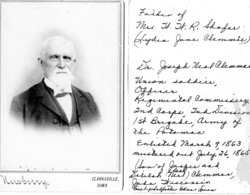 Newberry.
CLARKSVILLE,
IOWA.
Father of
Mrs. H. H. R. Shafer
(Lydia Jane Clemmer)
Dr. Joseph Neat Clemmer
Union soldier,
Officer
Regimental Commissary
2nd Corps 3rd Division
1st Brigade, Army of
the Potomac
Enlisted March 9, 1863
mustered out July 26, 1865
(Son of Joseph and
Clemmer,